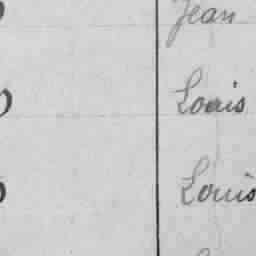 Jean
Louis
Louis